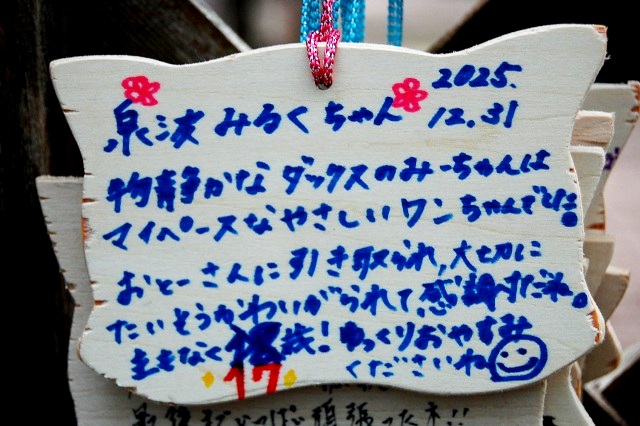 2025.
泉波 みるくちゃん 12.31
物静かな ダックスのみーちゃんは
マイペースなやさしいワンちゃんでした。
おとーさんに引き取られ、大切に
たいそうかわいがられて、感謝すだね。
まもなく 歳! ゆっくりおやすみ
17 くださいね
頑張ったネ!!